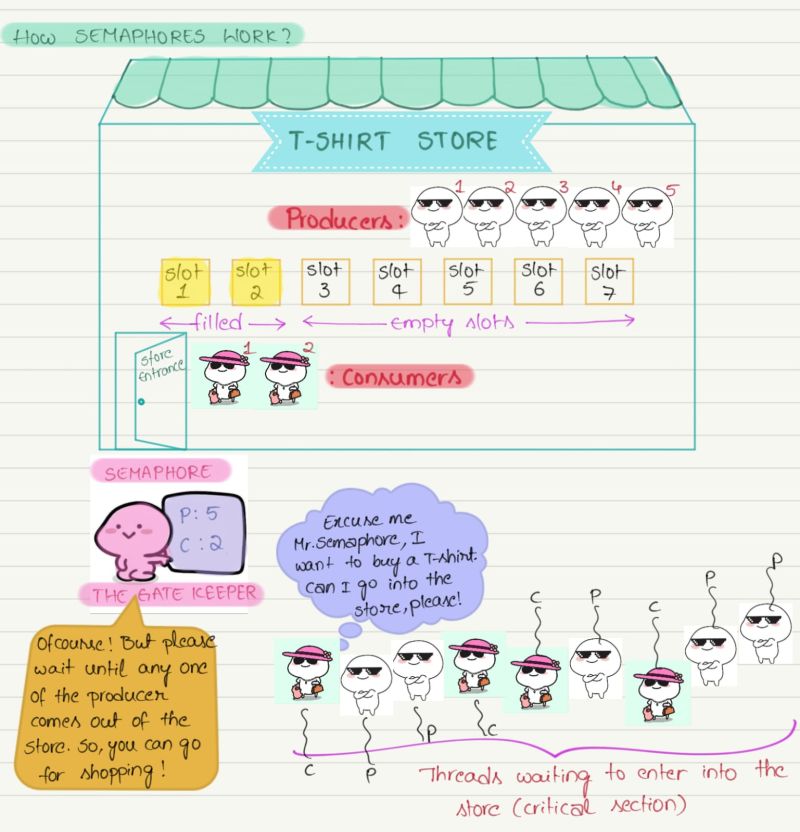 How SEMAPHORES WORK?
T-SHIRT STORE
Producers:
1 2 3 4 5
slot 1
slot 2
slot 3
slot 4
slot 5
slot 6
slot 7
filled
empty slots
store
entrance
1 2
: Consumers
SEMAPHORE
P: 5
C: 2
THE GATE KEEPER
Excuse me
Mr.Semaphore, I
want to buy a T-shirt.
Can I go into the
store, please!
Ofcourse! But please
wait until any one
of the producer
comes out of the
store. So, you can go
for shopping!
C
P
P
C
C
P
C
P
P
Threads waiting to enter into the
store (critical section)